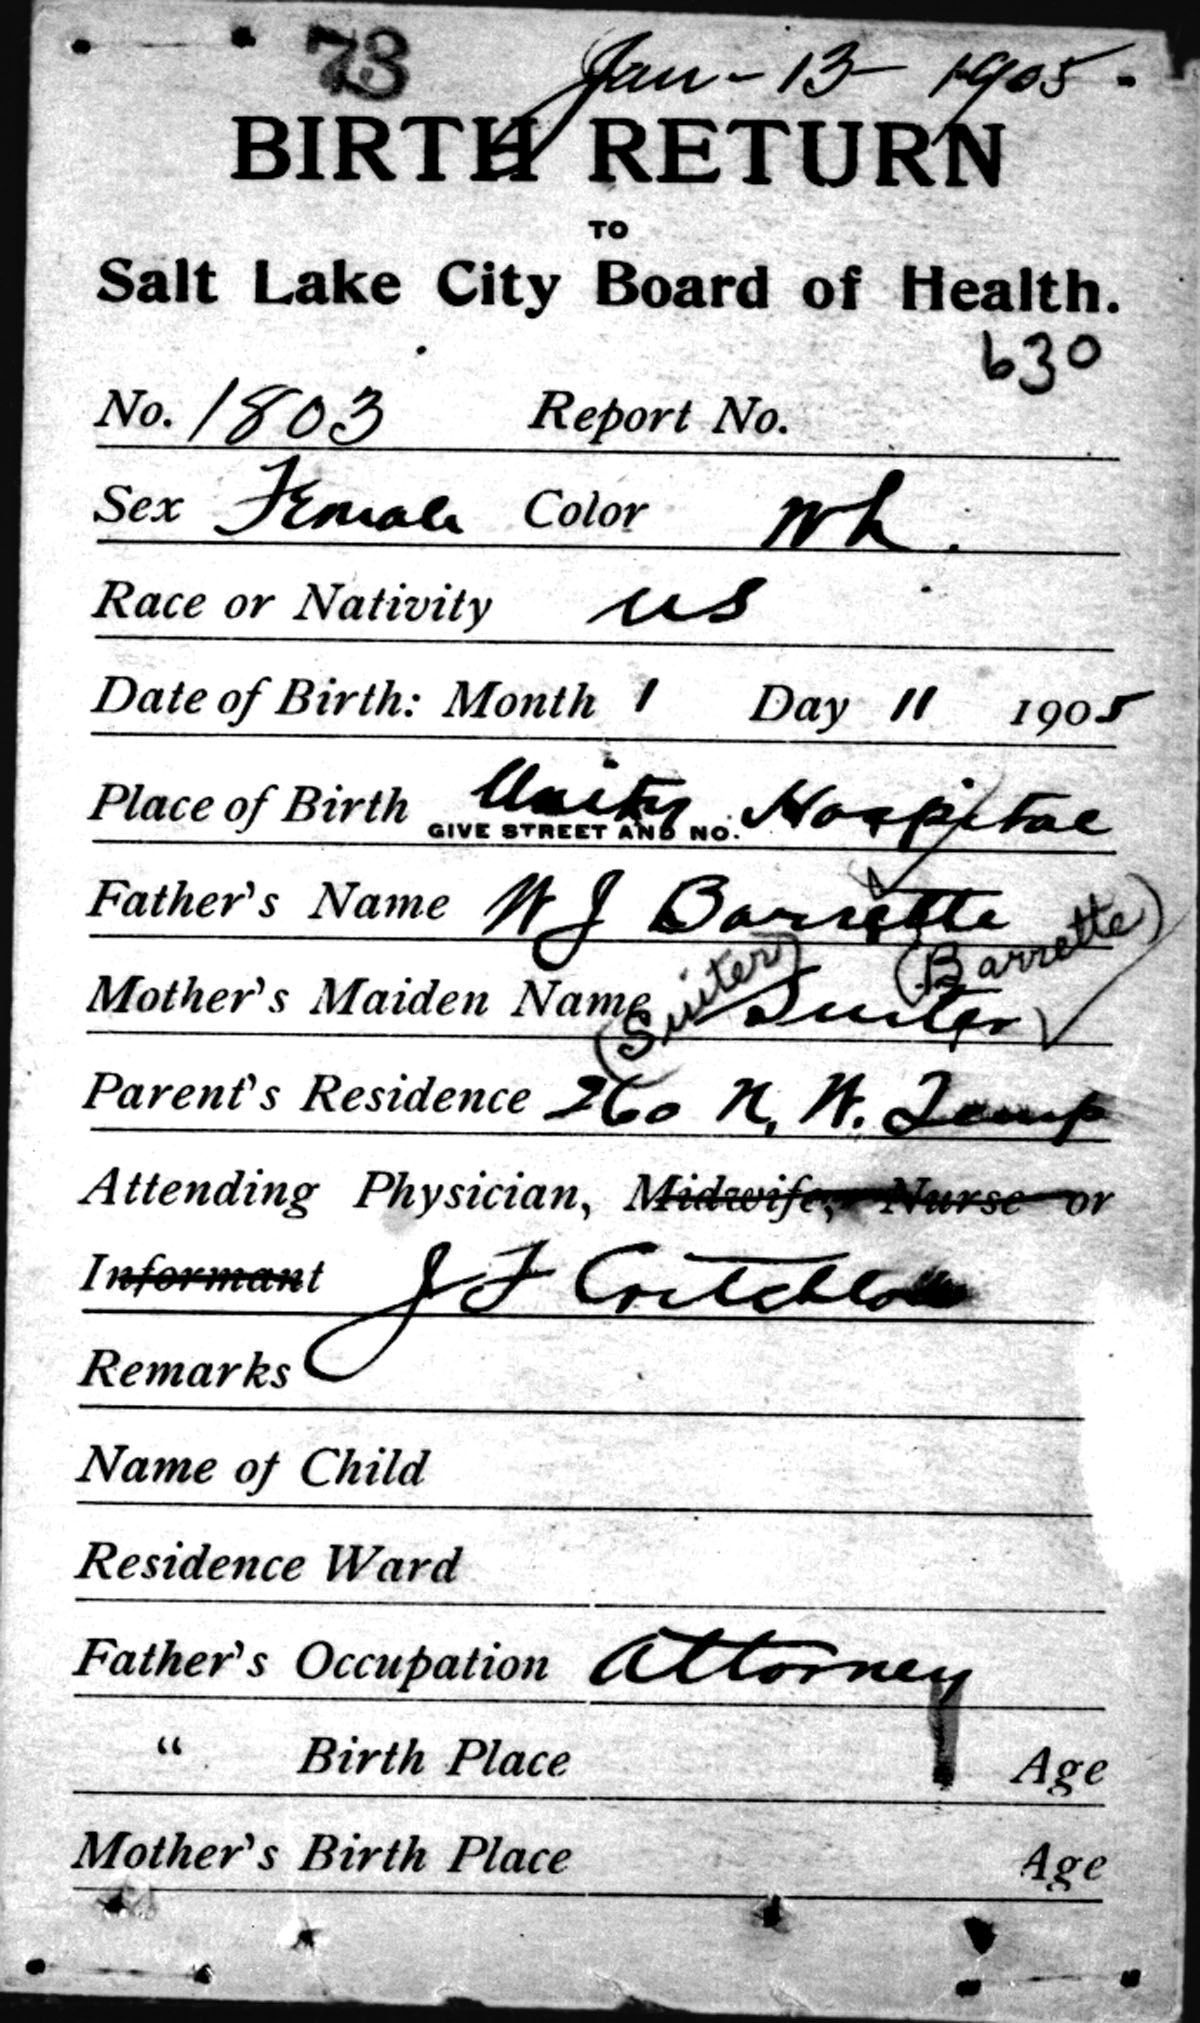 73 Jan - 13 - 1905 -
BIRTH RETURN
TO
Salt Lake City Board of Health.
630
No. 1803 Report No.
Sex Female Color Wh.
Race or Nativity US
Date of Birth: Month 1 Day 11 1905
Place of Birth Unity Hospital
GIVE STREET AND NO.
Father's Name W J Barrette
(Barrette)
Mother's Maiden Name Suiter
(Suiter)
Parent's Residence 260 N. W. Temp
Attending Physician, Midwife, Nurse or
Informant J F Critchlow
Remarks
Name of Child
Residence Ward
Father's Occupation Attorney
“ Birth Place Age
Mother's Birth Place Age